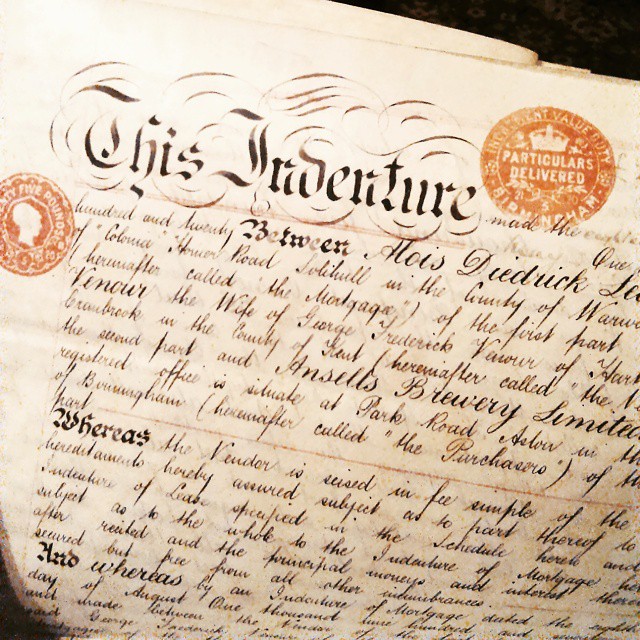 This Indenture made the
PARTICULARS
DELIVERED
hundred and twenty Between Alois Diedrick
of "Colonia" Road Solihull in the County of
(hereinafter called "the Mortgagee") of the first part
Venour the Wife of George Frederick Venour of
Cranbrook in the County of Kent (hereinafter called "the
the second part and Ansells Brewery Limited
registered office is situate at Park Road Aston in the
of Birmingham (hereinafter called "the Purchasers") of the
part
Whereas the Vendor is seised in fee simple of the
hereditaments hereby assured subject as to part thereof to
Indenture of Lease specified in the Schedule hereto and
subject as to the whole to the Indenture of Mortgage
after recited and the principal moneys and interest
secured but free from all other incumbrances
And whereas by an Indenture of Mortgage dated the
day of August One thousand nine hundred
and made between the Vendor of the
George Frederick Venour